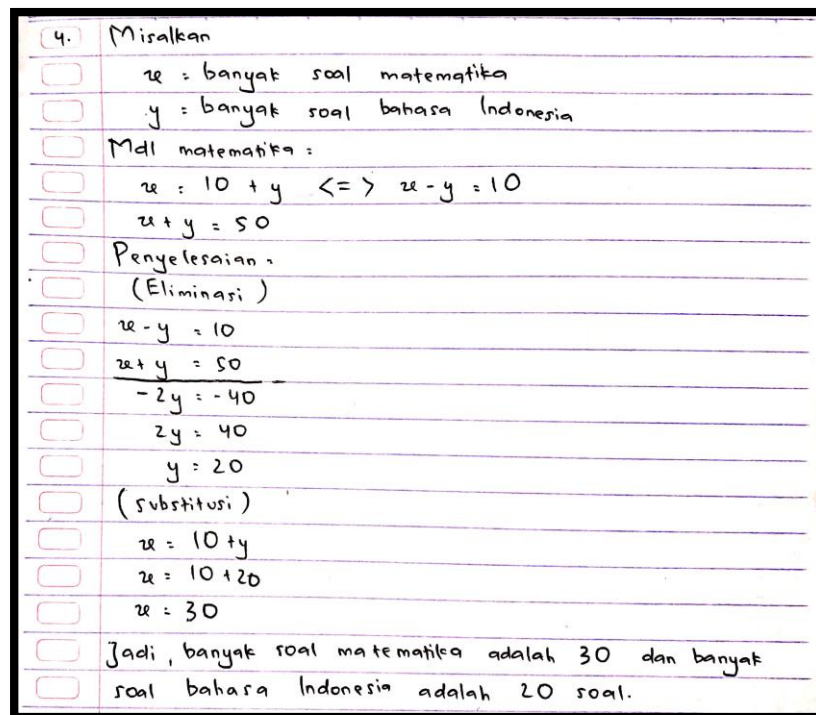 4. Misalkan
x = banyak soal matematika
y = banyak soal bahasa Indonesia
Mdl matematika :
x = 10 + y <=> x - y = 10
x + y = 50
Penyelesaian :
(Eliminasi)
x - y = 10
x + y = 50
-
-2y = -40
2y = 40
y = 20
(substitusi)
x = 10 + y
x = 10 + 20
x = 30
Jadi, banyak soal matematika adalah 30 dan banyak
soal bahasa Indonesia adalah 20 soal.